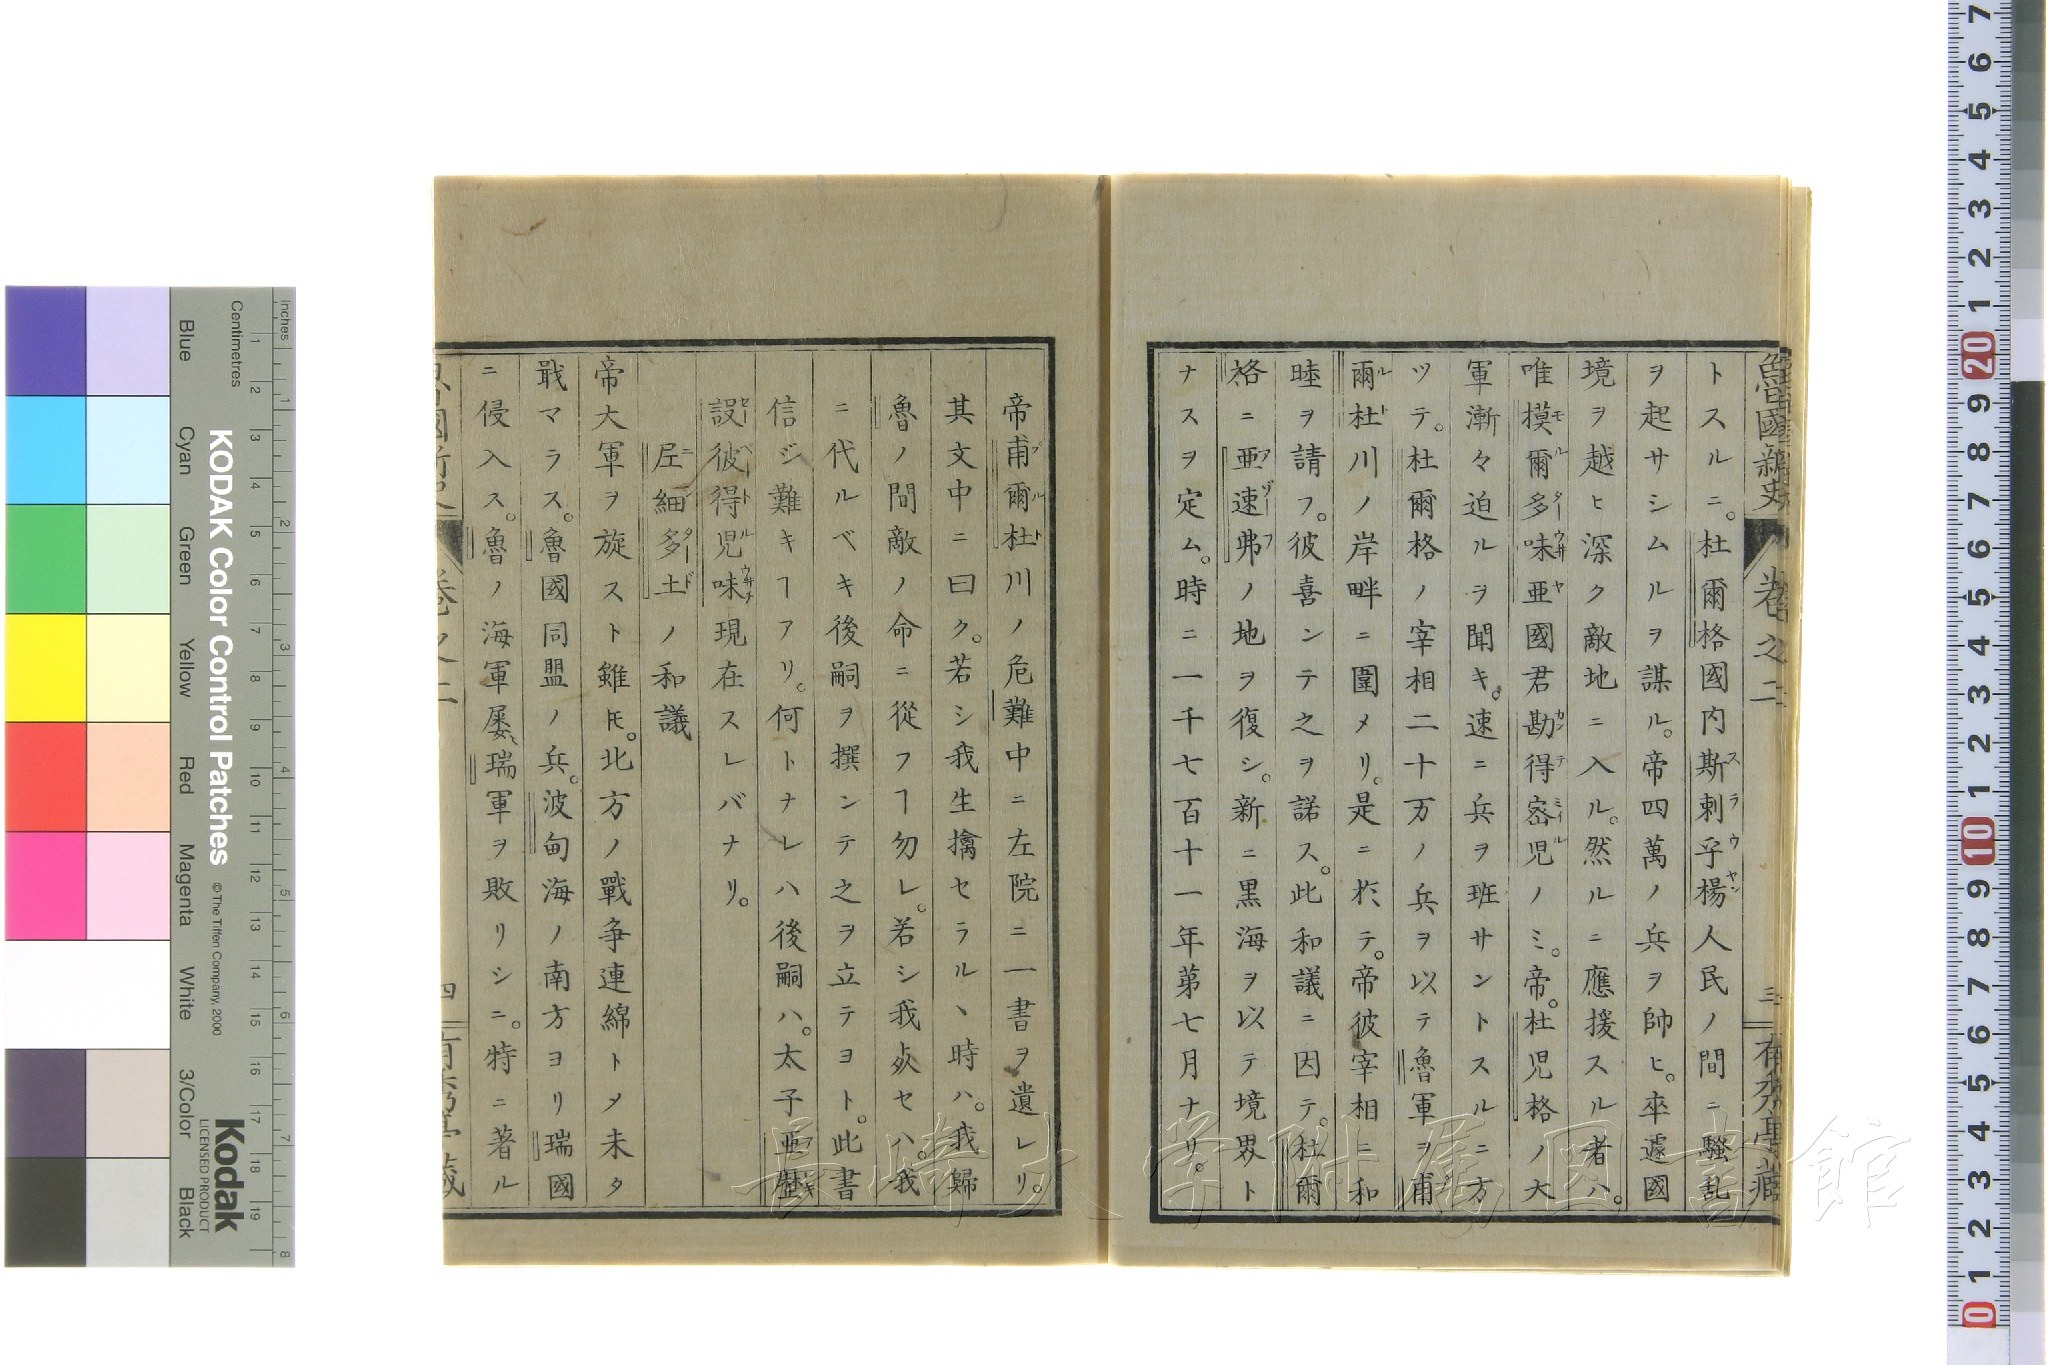 魯國新史 卷之二 三 有秀亭藏
トスルニ。杜爾格國内斯剌乎楊人民ノ間ニ騷乱
ヲ起サシムルヲ謀ル。帝四萬ノ兵ヲ帥ヒ。卒遽國
境ヲ越ヒ深ク敵地ニ入ル。然ルニ應援スル者ハ。
唯模爾多味亜國君勘得宻児ノミ。帝。杜児格ノ大
軍漸々迫ルヲ聞キ。速ニ兵ヲ班サントスルニ方
ツテ。杜爾格ノ宰相二十万ノ兵ヲ以テ魯軍ヲ甫
爾杜川ノ岸畔ニ圍メリ。是ニ於テ。帝彼宰相ニ和
睦ヲ請フ。彼喜ンテ之ヲ諾ス。此和議ニ因テ。杜爾
格ニ亜速弗ノ地ヲ復シ。新ニ黒海ヲ以テ境界ト
ナスヲ定ム。時ニ一千七百十一年第七月ナリ。
帝甫爾杜川ノ危難中ニ左院ニ一書ヲ遺レリ。
其文中ニ曰ク。若シ我生擒セラルヽ時ハ。我歸
魯ノ間敵ノ命ニ從フヿ勿レ。若シ我死セハ。我
ニ代ルベキ後嗣ヲ撰ンテ之ヲ立テヨト。此書
信ジ難キヿアリ。何トナレハ後嗣ハ。太子亜歴
設彼得児味現在スレバナリ。
㞐細多土ノ和議
帝大軍ヲ旋スト雖𪜈。北方ノ戰争連綿トメ未タ
戢マラス。魯國同盟ノ兵。波甸海ノ南方ヨリ瑞國
ニ侵入ス。魯ノ海軍屡〻瑞軍ヲ敗リシニ。特ニ著ル
魯國新史 卷之二 四 有秀亭藏
Blue
Cyan
Green
Yellow
Red
Magenta
White
3/Color
Black
KODAK Color Control Patches
© The Tiffen Company, 2000
Kodak
LICENSED PRODUCT
Centimetres
Inches
長崎大学附属図書館